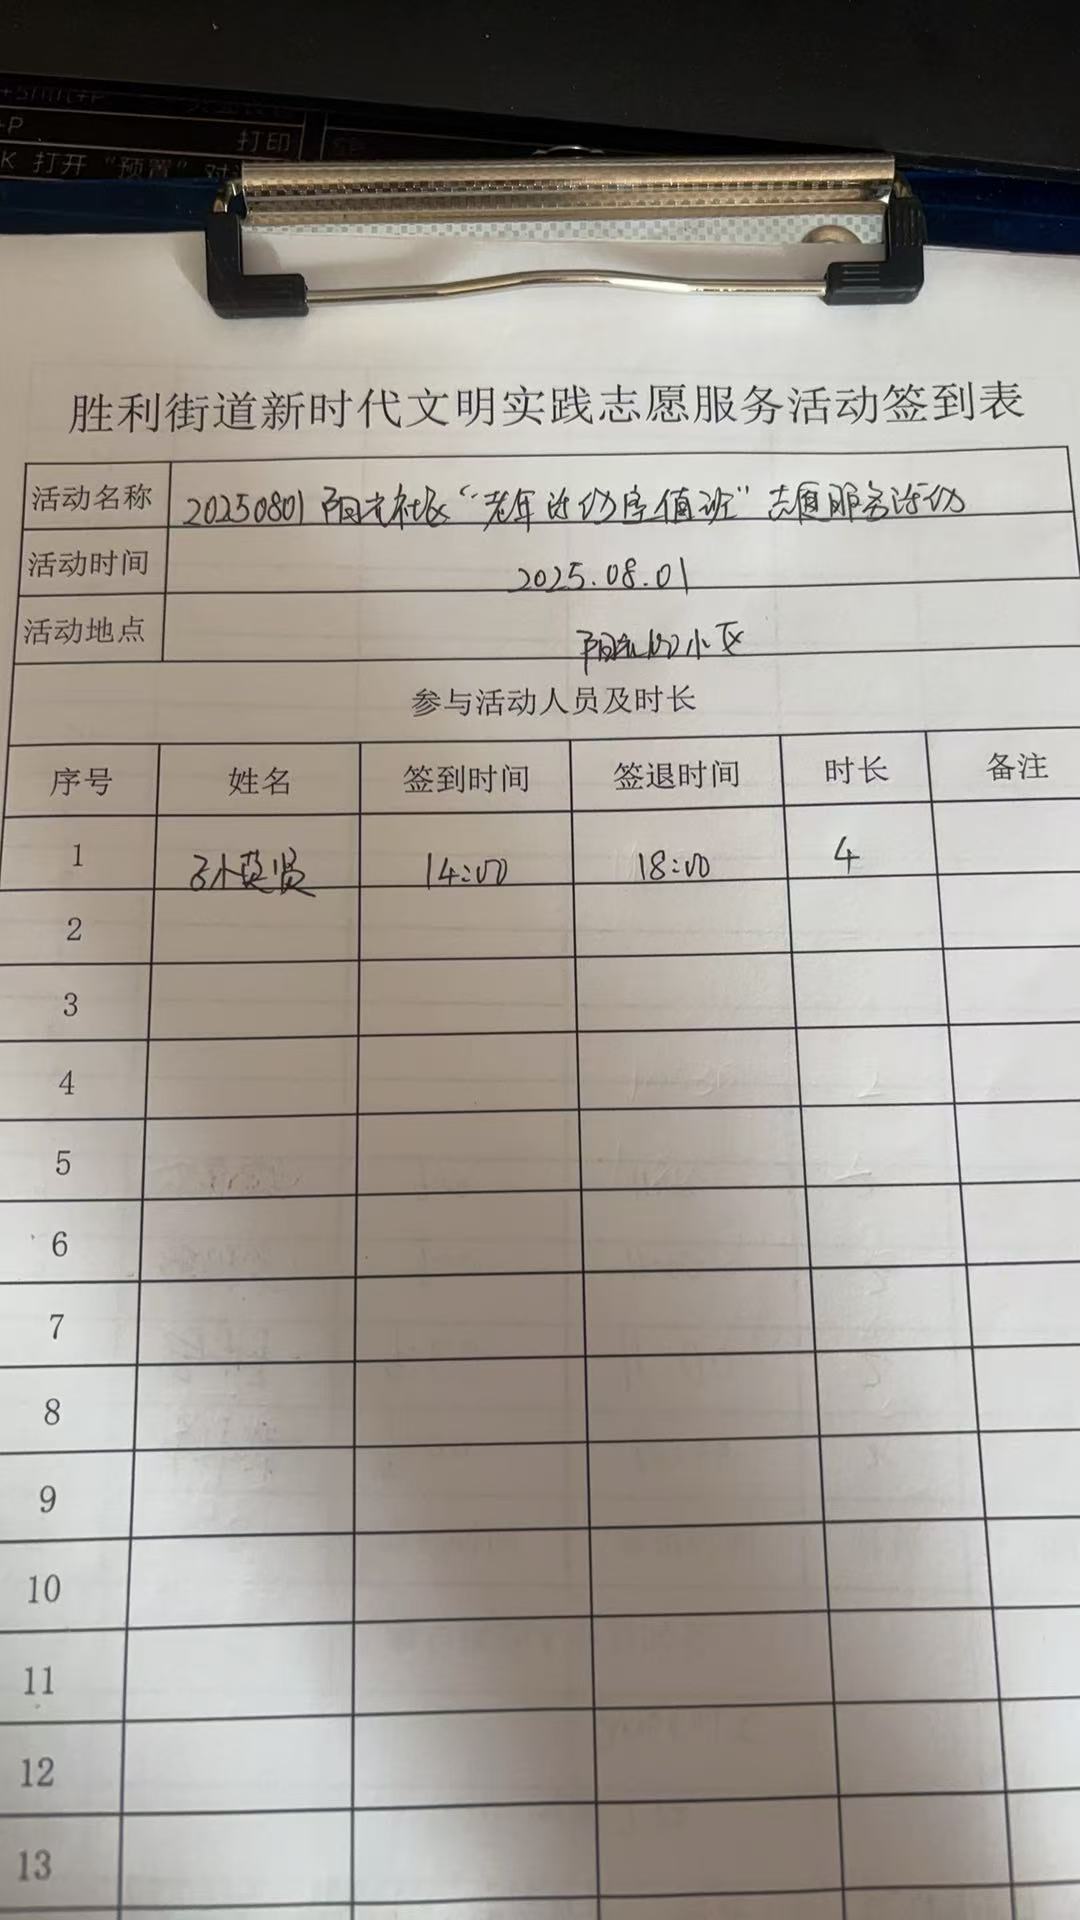 +Shift+P
+P 打印
K 打开 "预置" 对
胜利街道新时代文明实践志愿服务活动签到表
活动名称 20250801 阳光社区“老年活动室值班”志愿服务活动
活动时间 2025.08.01
活动地点 阳光 小区
参与活动人员及时长
序号 姓名 签到时间 签退时间 时长 备注
1 孙英贤 14:00 18:00 4
2
3
4
5
6
7
8
9
10
11
12
13